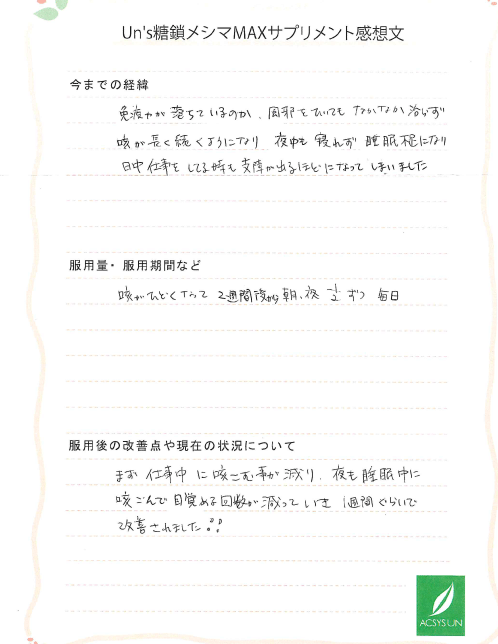 Un's糖鎖メシマMAXサプリメント感想文
今までの経緯
免疫力が落ちているのか、風邪をひいてもなかなか治らず
咳が長く続くようになり 夜中も寝れず 睡眠不足になり
日中仕事をしてる時も支障が出るほどになってしまいました
服用量・服用期間など
咳がひどくなって 2週間後から朝、夜 1/2ずつ 毎日
服用後の改善点や現在の状況について
まず 仕事中に咳こむ事が減り、夜も睡眠中に
咳こんで目覚める回数が減っていき 1週間ぐらいで
改善されました!!
ACSYS UN